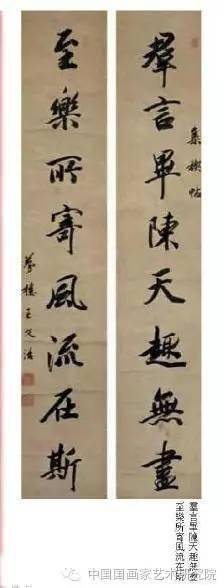 集禊帖
羣言畢陳天趣無盡
至樂所寄風流在斯
夢樓王文治
羣言畢陳天趣無盡
至樂所寄風流在斯
中国国画家艺术研究院